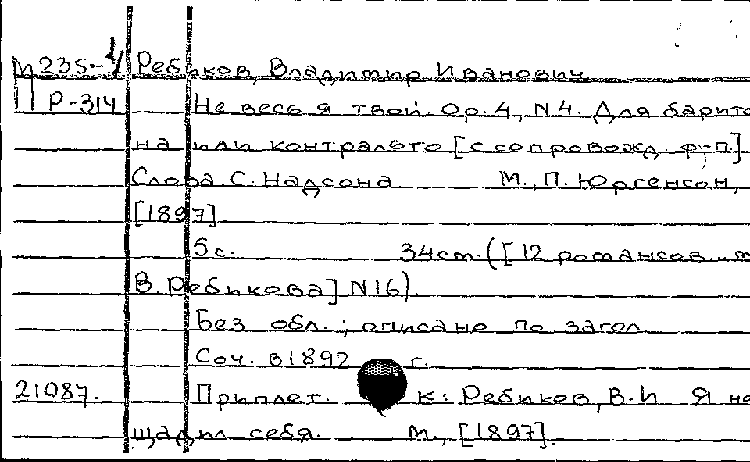 М235-4 Ребиков, Владимир Иванович
Р-314 Не весь я твой. Ор. 4, N4. Для барито
на или контральто [с сопровожд. ф-п.]
Слова С. Надсона М., П. Юргенсон,
[1897]
5с. 34см. ([12 романсов
В. Ребикова] N16)
Без обл.; описано по загол.
Соч. в 1892 г.
21087. Приплет. к: Ребиков, В.И Я не
щадил себя. М., [1897].